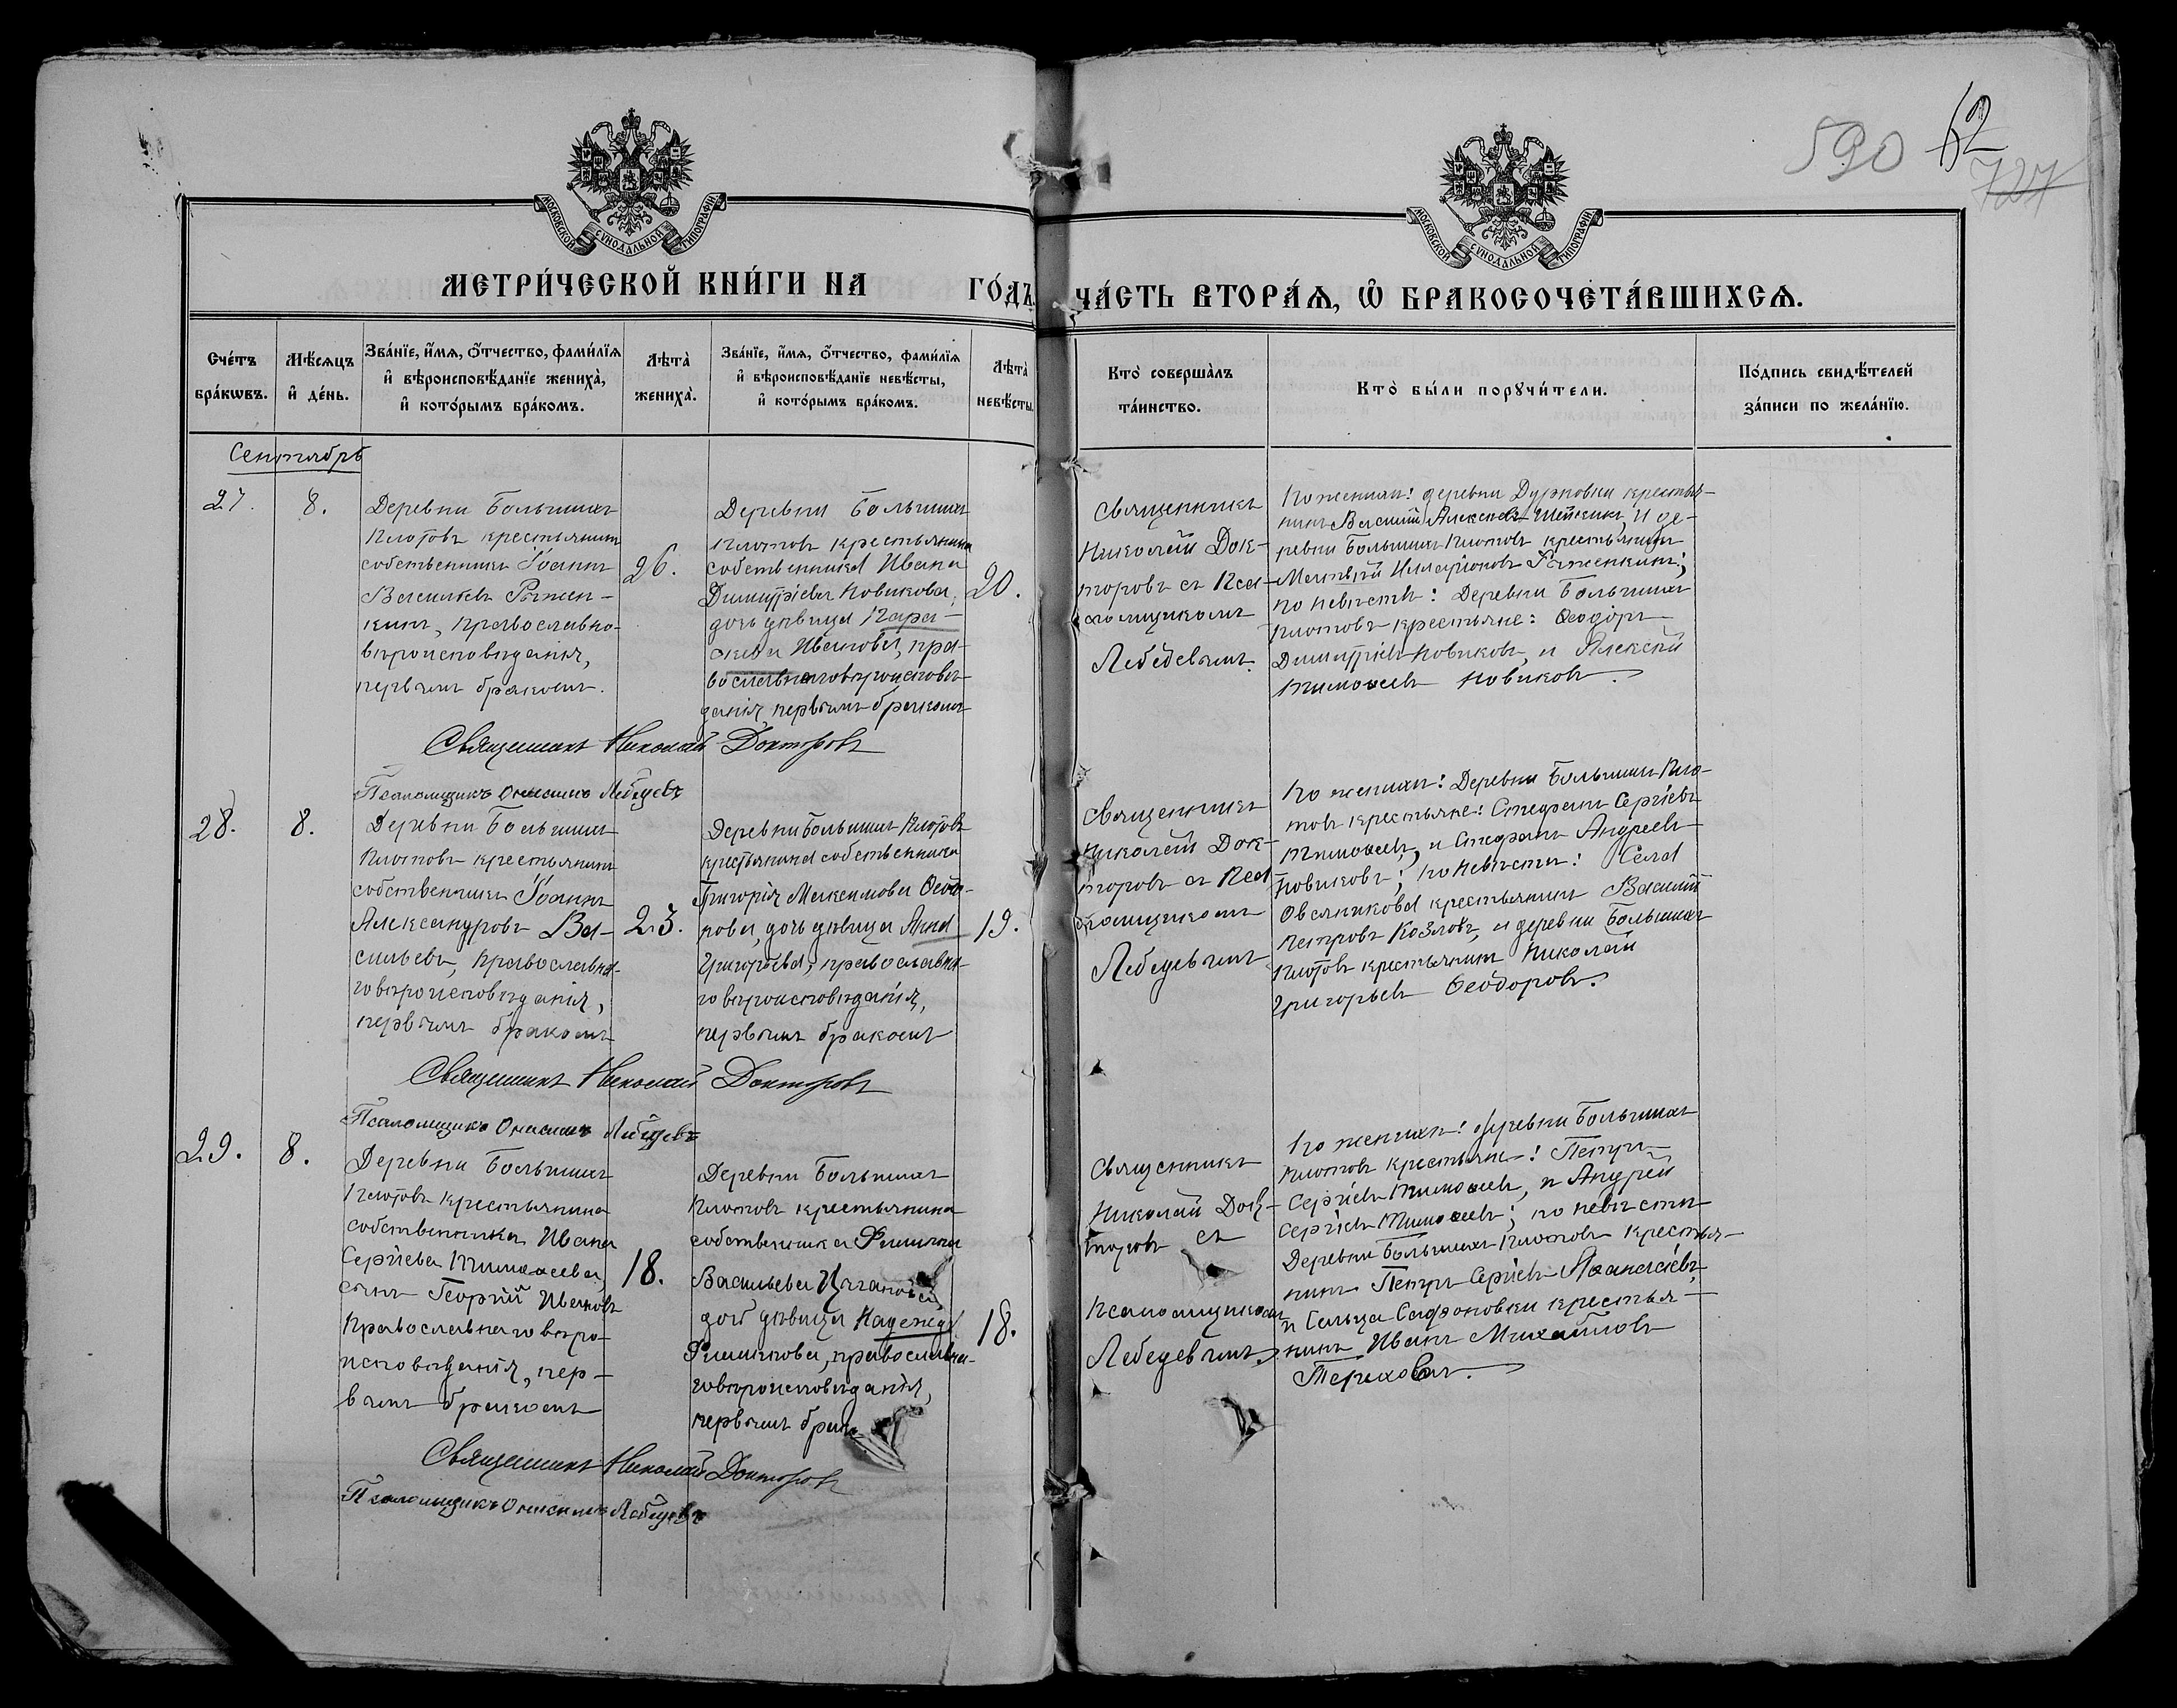 590 62
727
МОСКОВСКОЙ СѴНОДАЛЬНОЙ ТИПОГРАФІИ
МОСКОВСКОЙ СѴНОДАЛЬНОЙ ТИПОГРАФІИ
МЕТРИ́ЧЕСКОЙ КНИ́ГИ НА ГО́ДЪ,
ЧА́СТЬ ВТОРА́Ѧ, Ѽ БРАКОСОЧЕТА́ВШИХСѦ.
Счéтъ
брáкѡвъ.
Мѣ́сѧцъ
и҆ дéнь.
Звáнїе, и҆́мѧ, ѻ҆́тчество, фами́лїѧ
и҆ вѣроисповѣ́данїе женихà,
и҆ котóрымъ брáкомъ.
Лѣ́та
женихà.
Звáнїе, и҆́мѧ, ѻ҆́тчество, фами́лїѧ
и҆ вѣроисповѣ́данїе невѣ́сты,
и҆ котóрымъ брáкомъ.
Лѣ́та
невѣ́сты.
Ктò совершáлъ
тáинство.
Ктò бы́ли порꙋчи́тели.
Пóдпись свидѣ́телей
зáписи по желáнїю.
Сентябрь
27.
8.
Деревни Большихъ
Плотовъ крестьянинъ
собственникъ Іоаннъ
Васильевъ Ряжен-
кинъ, православна-
вѣроисповѣданія,
первымъ бракомъ.
26.
Деревни Большихъ
Плотовъ крестьянина
собственника Ивана
Димитріева Новикова,
дочь дѣвица Пара-
скева Иванова, пра-
вославнаговѣроисповѣ-
данія, первымъ бракомъ
20.
Священникъ
Николай Док-
торовъ съ Пса-
ломщикомъ
Лебедевымъ.
По женихѣ: деревни Дурковки крестья-
нинъ Василій Алексѣевъ Шейкинъ, и де-
ревни Большихъ Плотовъ крестьянинъ
Матвѣй Илларіоновъ Ряженкинъ;
по невѣстѣ: Деревни Большихъ
Плотовъ крестьяне: Ѳеодоръ
Димитріевъ Новиковъ, и Алексѣй
Тимоѳеевъ Новиковъ.
Священникъ Николай Докторовъ
Псаломщикъ Онисимъ Лебедевъ
28.
8.
Деревни Большихъ
Плотовъ крестьянинъ
собственникъ Іоаннъ
Александровъ Ва-
сильевъ, православна-
го вѣроисповѣданія,
первымъ бракомъ
23.
Деревни Большихъ Плотовъ
крестьянина собственника
Григорія Максимова Ѳеодо-
рова, дочь дѣвица Анна
Григорьева, православна-
го вѣроисповѣданія,
первымъ бракомъ
19.
Священникъ
Николай Док-
торовъ съ Пса-
ломщикомъ
Лебедевымъ
По женихѣ: Деревни Большихъ Пло-
товъ крестьяне: Стефанъ Сергіевъ
Тимоѳеевъ, и Стефанъ Андреевъ
Новиковъ; по невѣстѣ: Села
Овсяникова крестьянинъ Василій
Петровъ Козловъ, и деревни Большихъ
Плотовъ крестьянинъ Николай
Григорьевъ Ѳеодоровъ.
Священникъ Николай Докторовъ
Псаломщикъ Онисимъ Лебедевъ
29.
8.
Деревни Большихъ
Плотовъ крестьянина
собственника Ивана
Сергіева Тимоѳеева,
сынъ Георгій Ивановъ
Православнаго вѣро-
исповѣданія, пер-
вымъ бракомъ
18.
Деревни Большихъ
Плотовъ крестьянина
собственника Филиппа
Васильева Цыганова,
дочь дѣвица Надежда
Филиппова, православна-
говѣроисповѣданія,
первымъ брак
18.
Священникъ
Николай Док-
торовъ съ
Псаломщикомъ
Лебедевымъ.
По женихѣ: Деревни Большихъ
Плотовъ крестьяне: Петръ
Сергіевъ Тимоѳеевъ, и Андрей
Сергіевъ Тимоѳеевъ; по невѣстѣ
Деревни Большихъ Плотовъ крестья-
нинъ Петръ Сергіевъ Аѳанасіевъ,
и Сельца Сафоновки крестья-
нинъ Иванъ Михайловъ
Териховъ.
Священникъ Николай Докторовъ
Псаломщикъ Онисимъ Лебедевъ